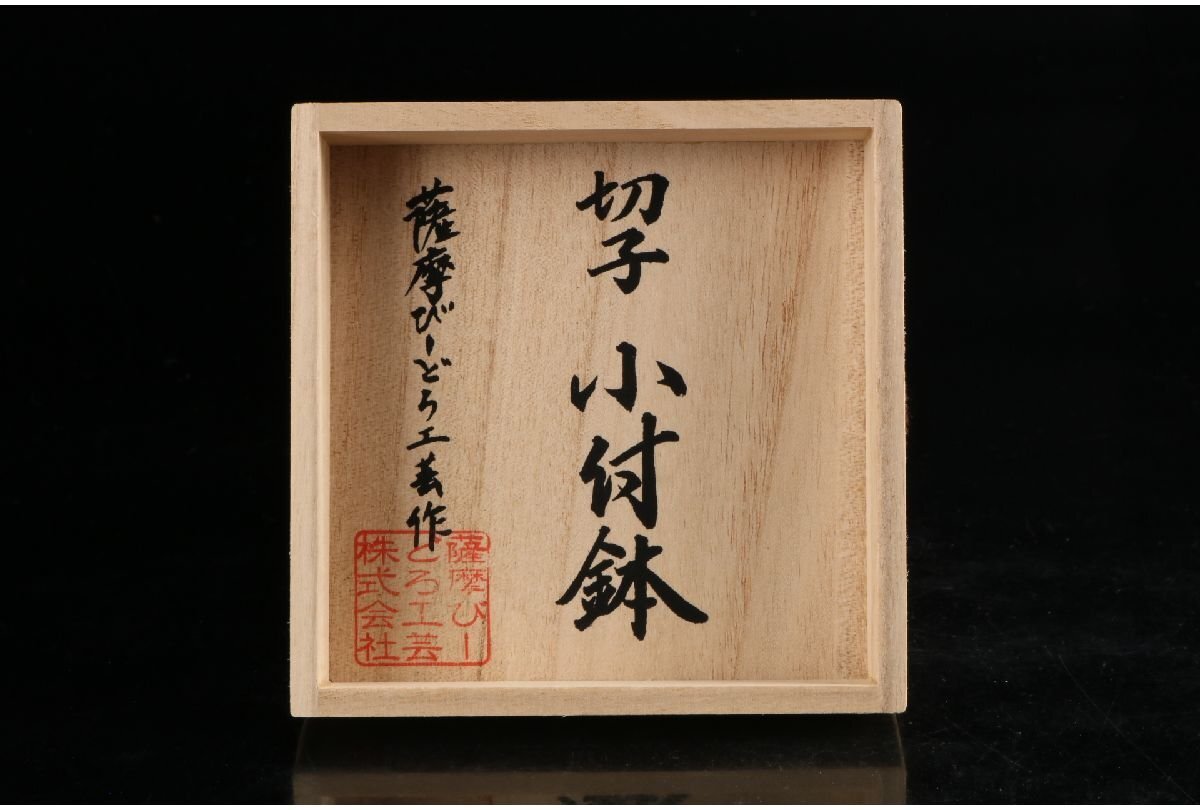 切子 小付鉢
薩摩びーどろ工芸作
薩摩びー
どろ工芸
株式会社